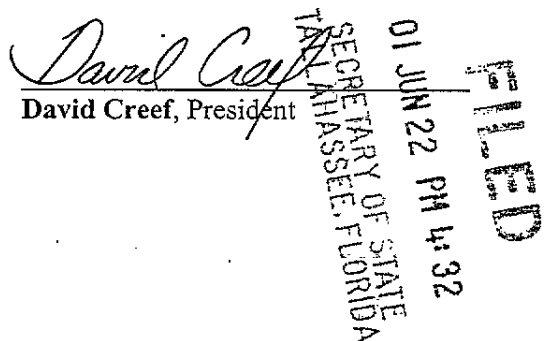 David Creef
David Creef, President
FILED
01 JUN 22 PM 4:32
SECRETARY OF STATE
TALLAHASSEE, FLORIDA